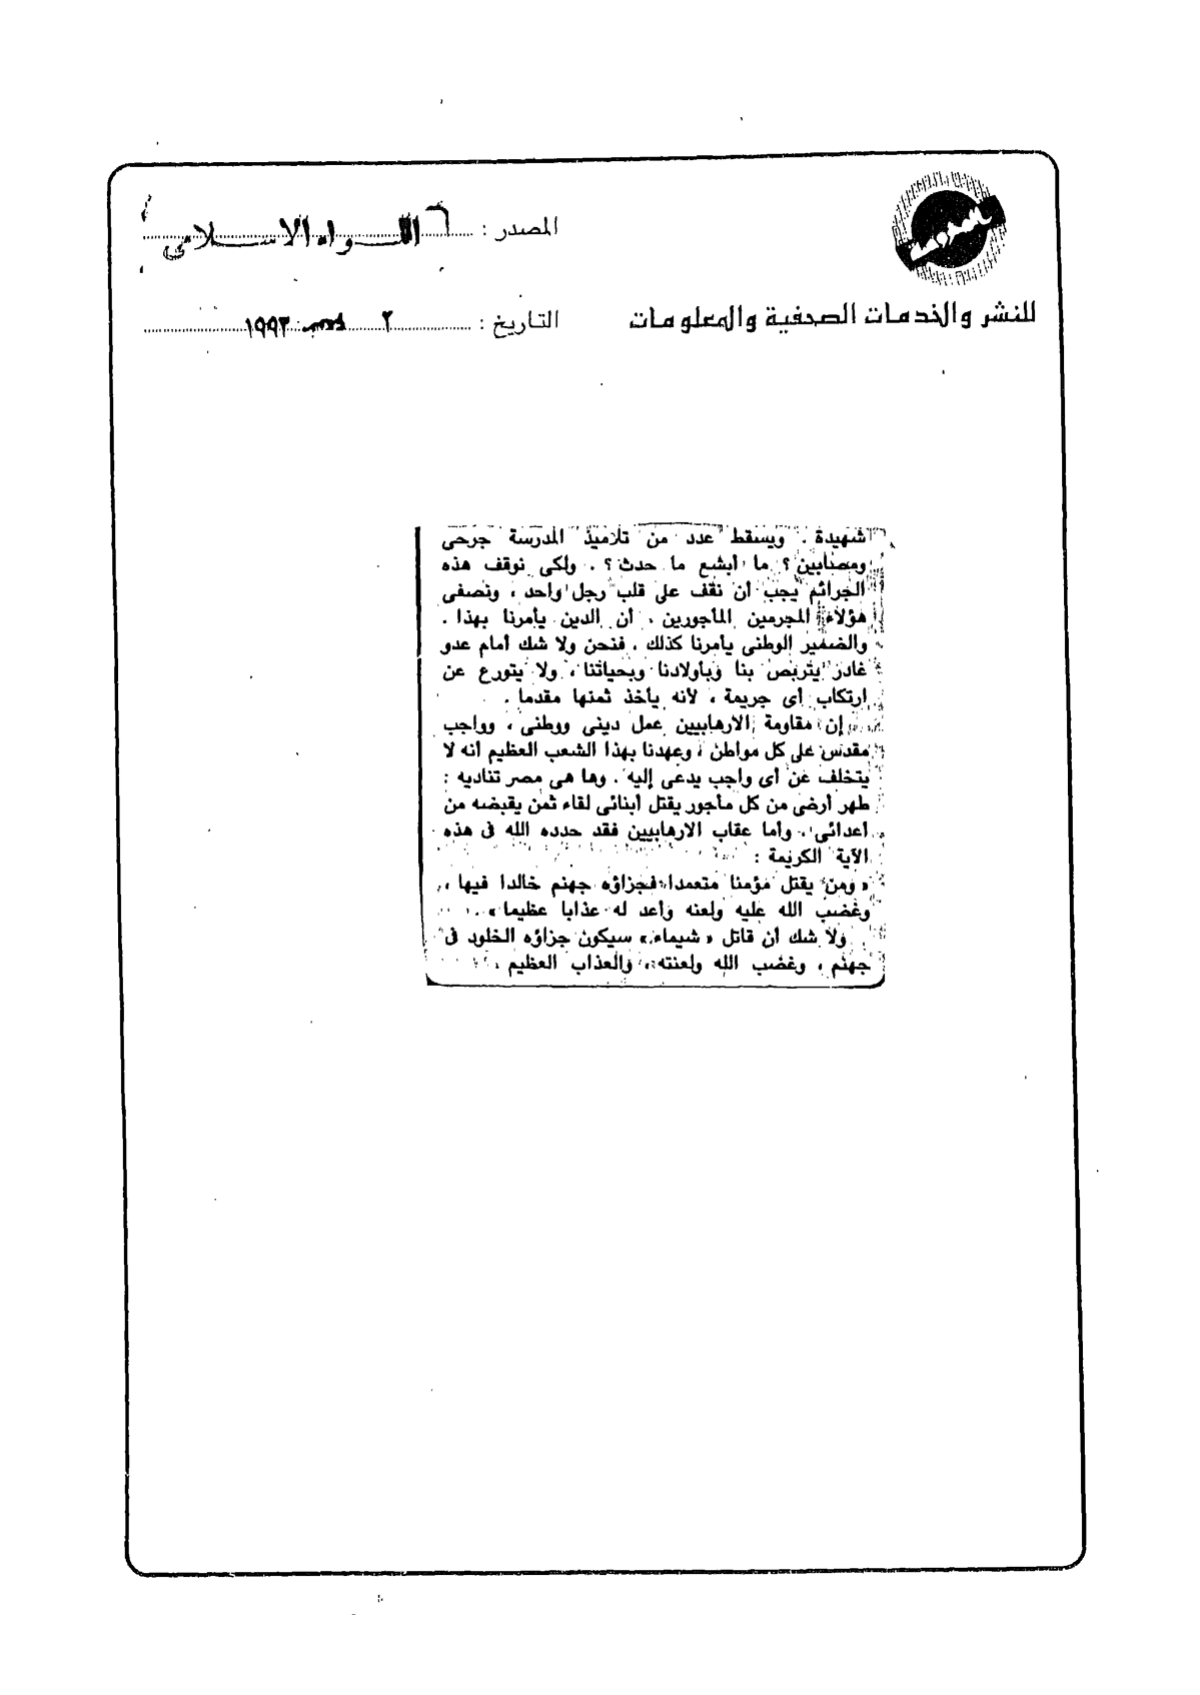 المصدر : اللواء الاسلامى
للنشر والخدمات الصحفية والمعلومات
التاريخ : ٢ ديسمبر ١٩٩٣
شهيدة . ويسقط عدد من تلاميذ المدرسة جرحى
ومصابين ؟ ما أبشع ما حدث ؟ . ولكى نوقف هذه
الجرائم يجب أن نقف على قلب رجل واحد ، ونصفى
هؤلاء المجرمين المأجورين . أن الدين يأمرنا بهذا .
والضمير الوطنى يأمرنا كذلك ، فنحن ولا شك أمام عدو
غادر يتربص بنا وبأولادنا وبحياتنا ، ولا يتورع عن
ارتكاب أى جريمة ، لأنه يأخذ ثمنها مقدما .
إن مقاومة الارهابيين عمل دينى ووطنى ، وواجب
مقدس على كل مواطن ، وعهدنا بهذا الشعب العظيم أنه لا
يتخلف عن أى واجب يدعى إليه . وها هى مصر تناديه :
طهر أرضى من كل مأجور يقتل أبنائى لقاء ثمن يقبضه من
أعدائى . وأما عقاب الارهابيين فقد حدده الله فى هذه
الآية الكريمة :
« ومن يقتل مؤمنا متعمدا فجزاؤه جهنم خالدا فيها ،
وغضب الله عليه ولعنه وأعد له عذابا عظيما » .
ولا شك أن قاتل « شيماء » سيكون جزاؤه الخلود فى
جهنم ، وغضب الله ولعنته ، والعذاب العظيم .